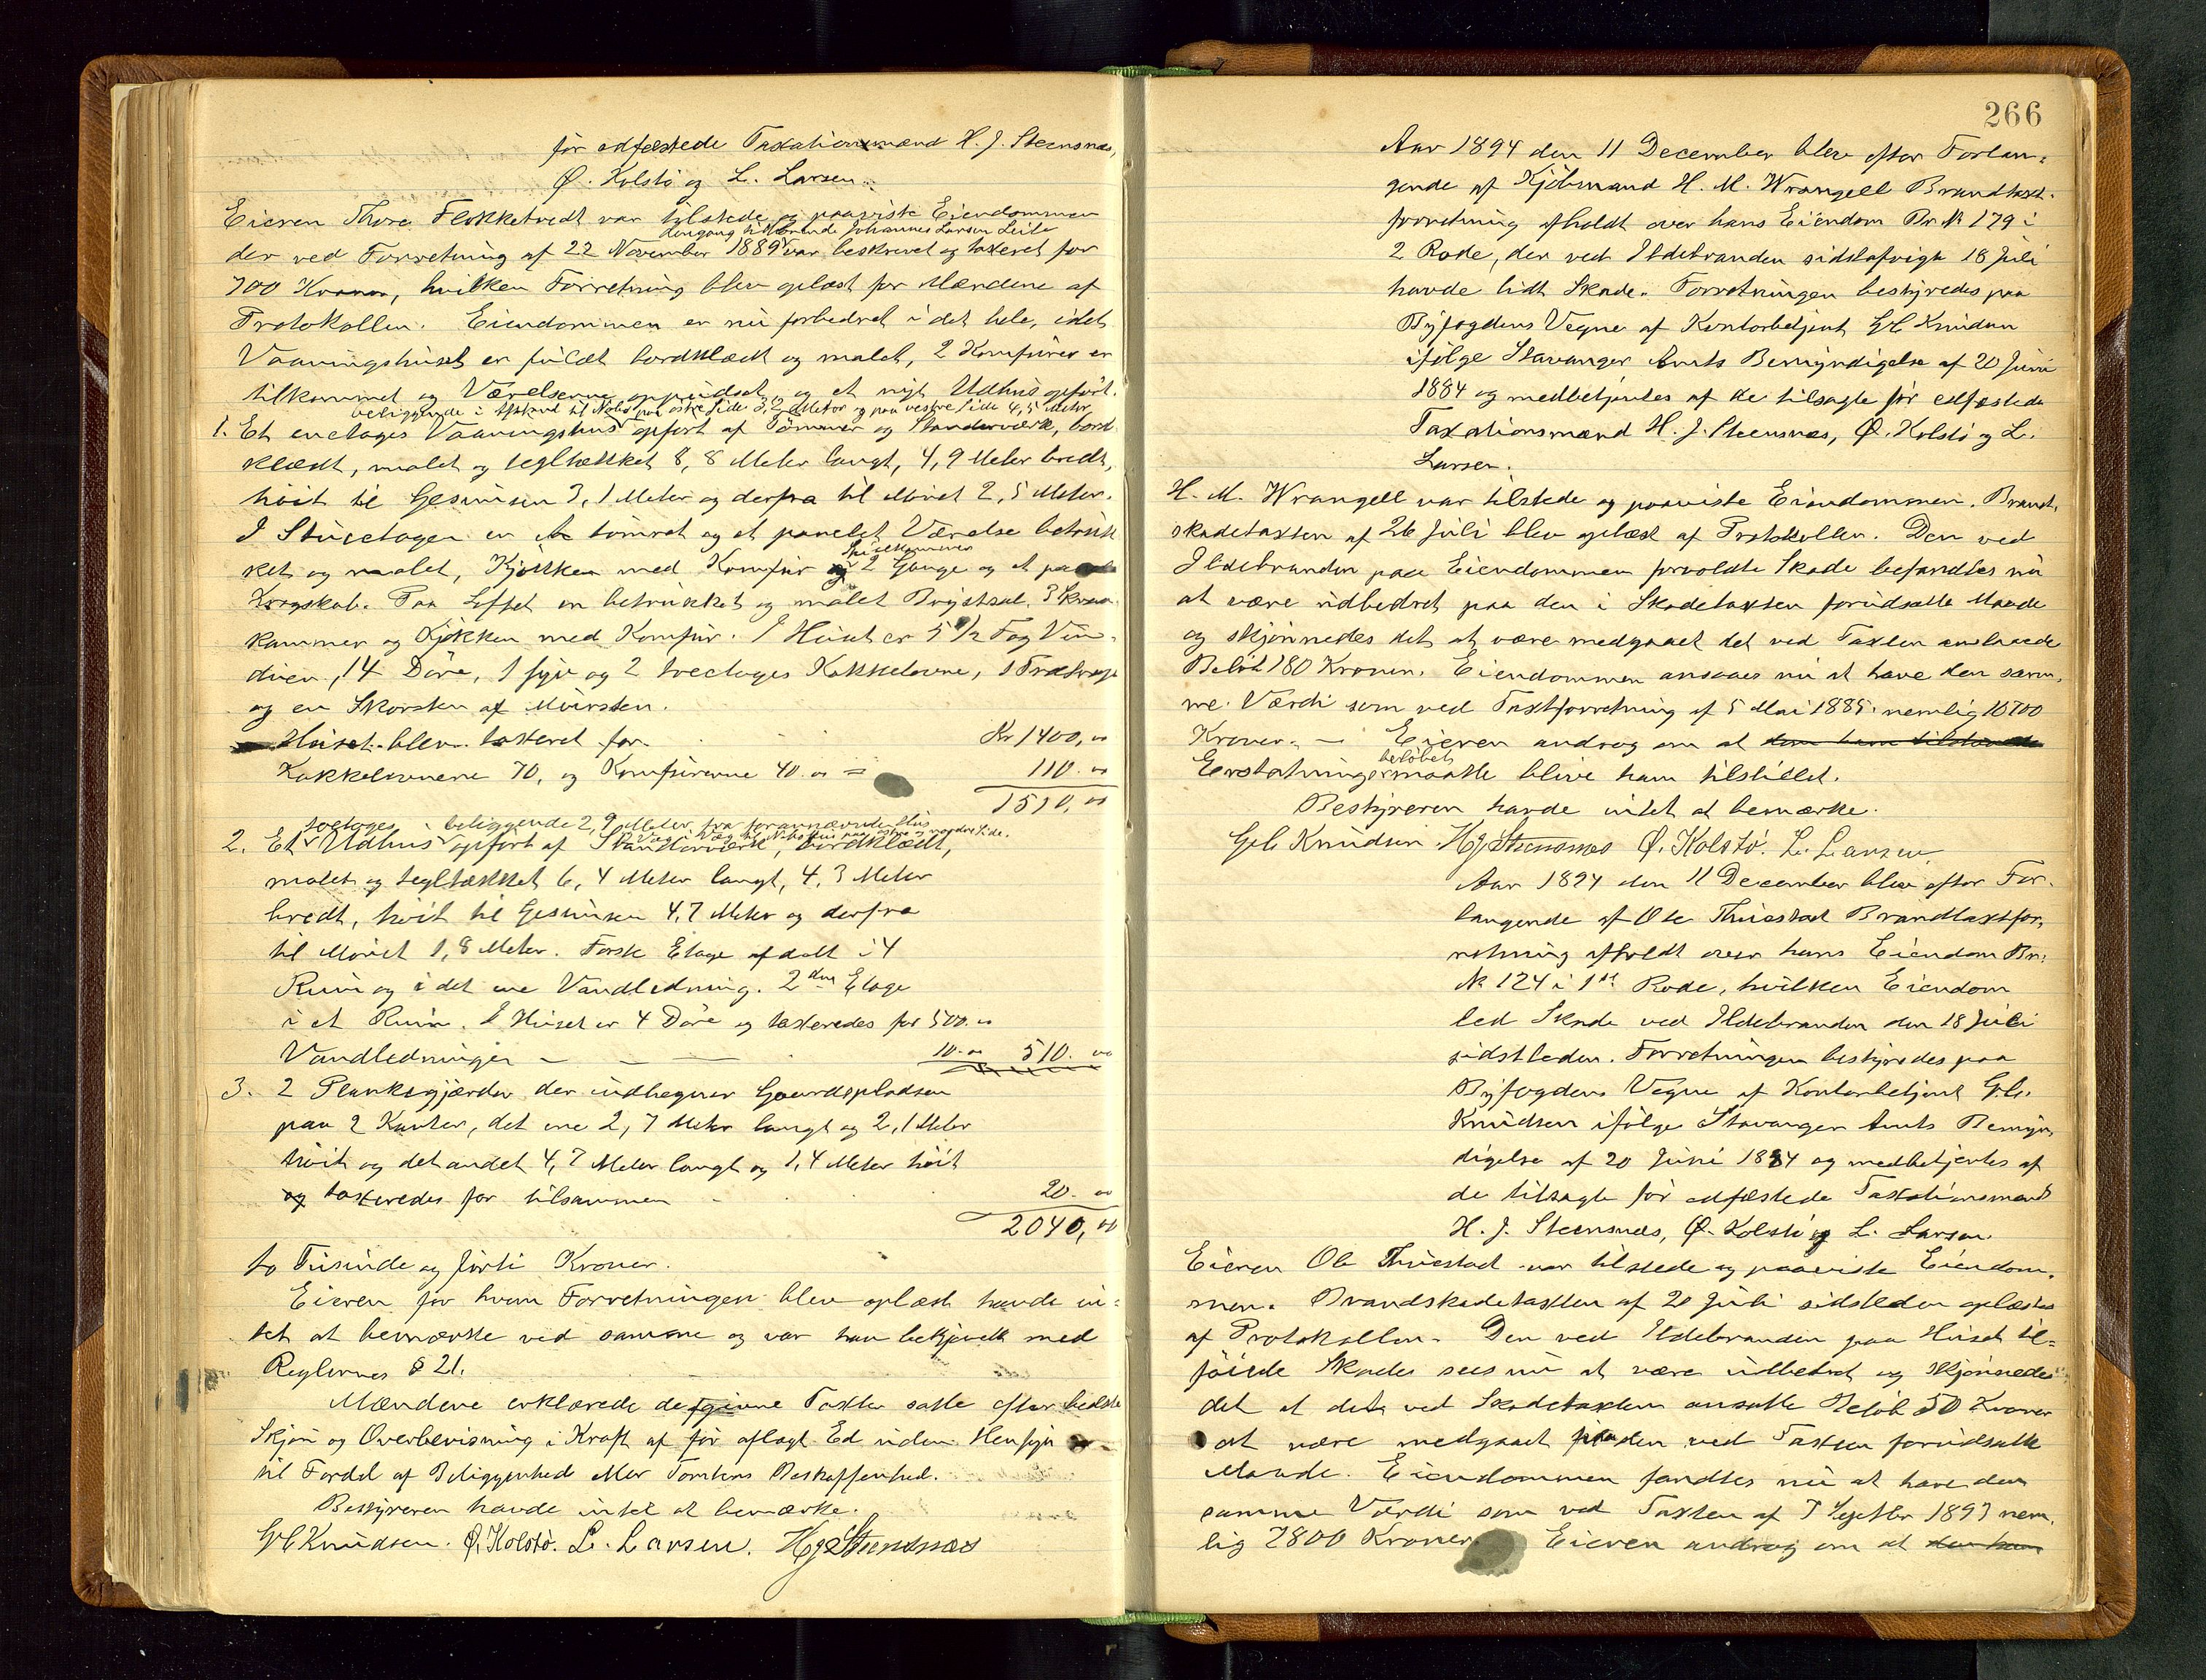 før edfæstede Taxationsmænd H. J. Steensnæs,
Ø. Kolstø og L. Larsen.
Eieren Thore Flokketvedt var tilstede og paaviste Eiendommen
dengang tilhørende Johannes Larsen Leite
der ved Forretning af 22 November 1889 var beskrevet og taxeret for
700 Kroner, hvilken Forretning blev oplæst for Mændene af
Protokollen. Eiendommen er nu forbedret i det hele, idet
Vaaningshuset er fuldt bordklædt og malet, 2 Komfurer er
tilkommet og Værelserne oppudset og et nyt Udhus opført.
beliggende i Afstand til Nabo paa østre Side 3,2 Meter og paa vestre Side 4,5 Meter
1. Et enetages Vaaningshus opført af Tømmer og Standerværk, bord
klædt, malet og tegltækket 8,8 Meter langt, 4,9 Meter bredt,
høit til Gesimsen 3,1 Meter og derfra til Mønet 2,5 Meter.
I Stueetagen er et tømret og et panelet Værelse betruk
Spisekammer
ket og malet, Kjøkken med Komfur og 2 Gange og et
Paa Loftet en betrukket og malet Brystsal, 3 Kraa
kammer og Kjøkken med Komfur. I Huset er 5 1/2 Fag Vin-
duer, 14 Døre, 1 fyr og 2 treetages Kakkelovne, 1 Trætrappe
og en Skorsten af Mursten.
Huset blev taxeret for Kr 1400,00
Kakkelovnene 70, og Komfurerne 40.00 = 110.00
1510,00
toetages beliggende 2,9 Meter fra forannævnte Hus
Væg i Væg til Nabohus paa østre og nordre Side.
2. Et Udhus opført af Standerværk, bordklædt,
malet og tegltækket 6,4 Meter langt, 4,3 Meter
bredt, høit til Gesimsen 4,7 Meter og derfra
til Mønet 1,8 Meter. Første Etage afdelt i 4
Rum og i det ene Vandledning. 2den Etage
i et Rum. I Huset er 4 Døre og taxeredes for 500.00
Vandledninger 10.00 510.00
3. 2 Plankegjærder der indhegner Gaardspladsen
paa 2 Kanter, det ene 2,7 Meter langt og 2,1 Meter
høit og det andet 4,7 Meter langt og 1,4 Meter høit
og taxeredes for tilsammen 20.00
2040,00
to Tusinde og førti Kroner.
Eieren for hvem Forretningen blev oplæst havde in-
tet at bemærke ved samme og var han bekjendt med
Reglernes § 21.
Mændene erklærede de givne Taxter satte efter bedste
Skjøn og Overbevisning i Kraft af før aflagt Ed uden Hensyn
til Fordel af Beliggenhed eller Tomtens Beskaffenhed.
Bestyreren havde intet at bemærke.
Gbl Knudsen. Ø. Kolstø. L. Larsen. HJSteensnæs
266
Aar 1894 den 11 December blev efter Forlan-
gende af Kjøbmand H. M. Wrangell Brandtaxt-
forretning afholdt over hans Eiendom Br. No 179 i
2 Rode, der ved Ildebranden sidstafvigte 18 Juli
havde lidt Skade. Forretningen bestyredes paa
Byfogdens Vegne af Kontorbetjent Gbl Knudsen
ifølge Stavanger Amts Bemyndigelse af 20 Juni
1884 og medbetjentes af de tilsagte før edfæstede
Taxationsmænd H. J. Steensnæs, Ø. Kolstø og L.
Larsen.
H. M. Wrangell var tilstede og paaviste Eiendommen. Brand-
skadetaxten af 26 Juli blev oplæst af Protokollen. Den ved
Ildebranden paa Eiendommen forvoldte Skade befandtes nu
at være udbedret paa den i Skadetaxten forudsatte Maade
og skjønnedes det at være medgaaet det ved Taxten anslaaede
Beløb 180 Kroner. Eiendommen ansaaes nu at have den sam-
me Værdi som ved Taxtforretning af 5 Mai 1885 nemlig 10700
Kroner. — Eieren androg om at den ham tilstaaede
beløbet
Erstatnings maatte blive ham tilstillet.
Bestyreren havde intet at bemærke.
Gbl Knudsen. HJSteensnæs Ø. Kolstø. L. Larsen.
Aar 1894 den 11 December blev efter For-
langende af Ole Thuestad Brandtaxtfor-
retning afholdt over hans Eiendom Br.
No 124 i 1ste Rode, hvilken Eiendom
led Skade ved Ildebranden den 18 Juli
sidstleden. Forretningen bestyredes paa
Byfogdens Vegne af Kontorbetjent Gbl.
Knudsen ifølge Stavanger Amts Bemyn-
digelse af 20 Juni 1884 og medbetjentes af
de tilsagte før edfæstede Taxationsmænd
H. J. Steensnæs, Ø. Kolstø og L. Larsen.
Eieren Ole Thuestad var tilstede og paaviste Eiendom-
men. Brandskadetaxten af 20 Juli sidstleden oplæstes
af Protokollen. Den ved Ildebranden paa Huset til-
føiede Skade sees nu at være udbedret og skjønnedes
det at det ved Skadetaxten ansatte Beløb 50 Kroner
at være medgaaet paa den ved Taxten forudsatte
Maade. Eiendommen fandtes nu at have den
samme Værdi som ved Taxten af 7 Septbr 1893 nem-
lig 7800 Kroner. Eieren androg om at den ham